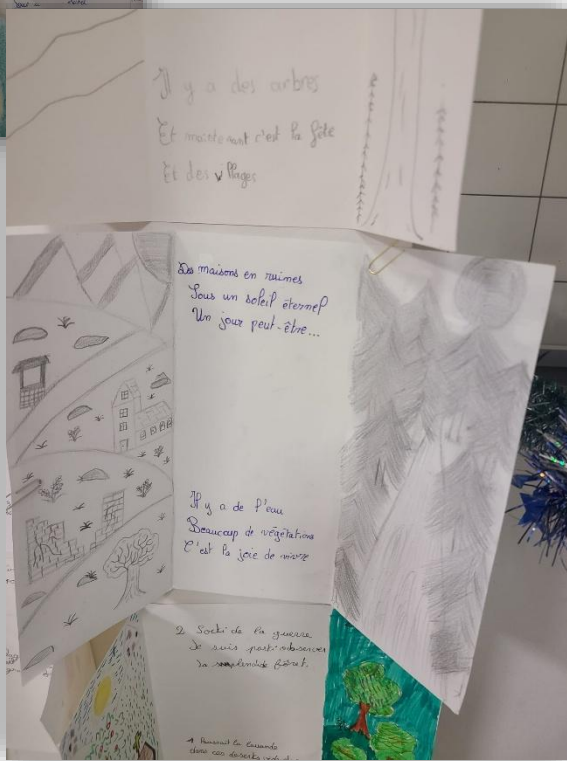 Il y a des arbres
Et maintenant c'est la fête
Et des villages
Des maisons en ruines
Sous un soleil éternel
Un jour peut-être...
Il y a de l'eau
Beaucoup de végétations
C'est la joie de vivre
2 Sorti de la guerre
Je suis parti observer
la splendide forêt.
1 la
dans ces déserts